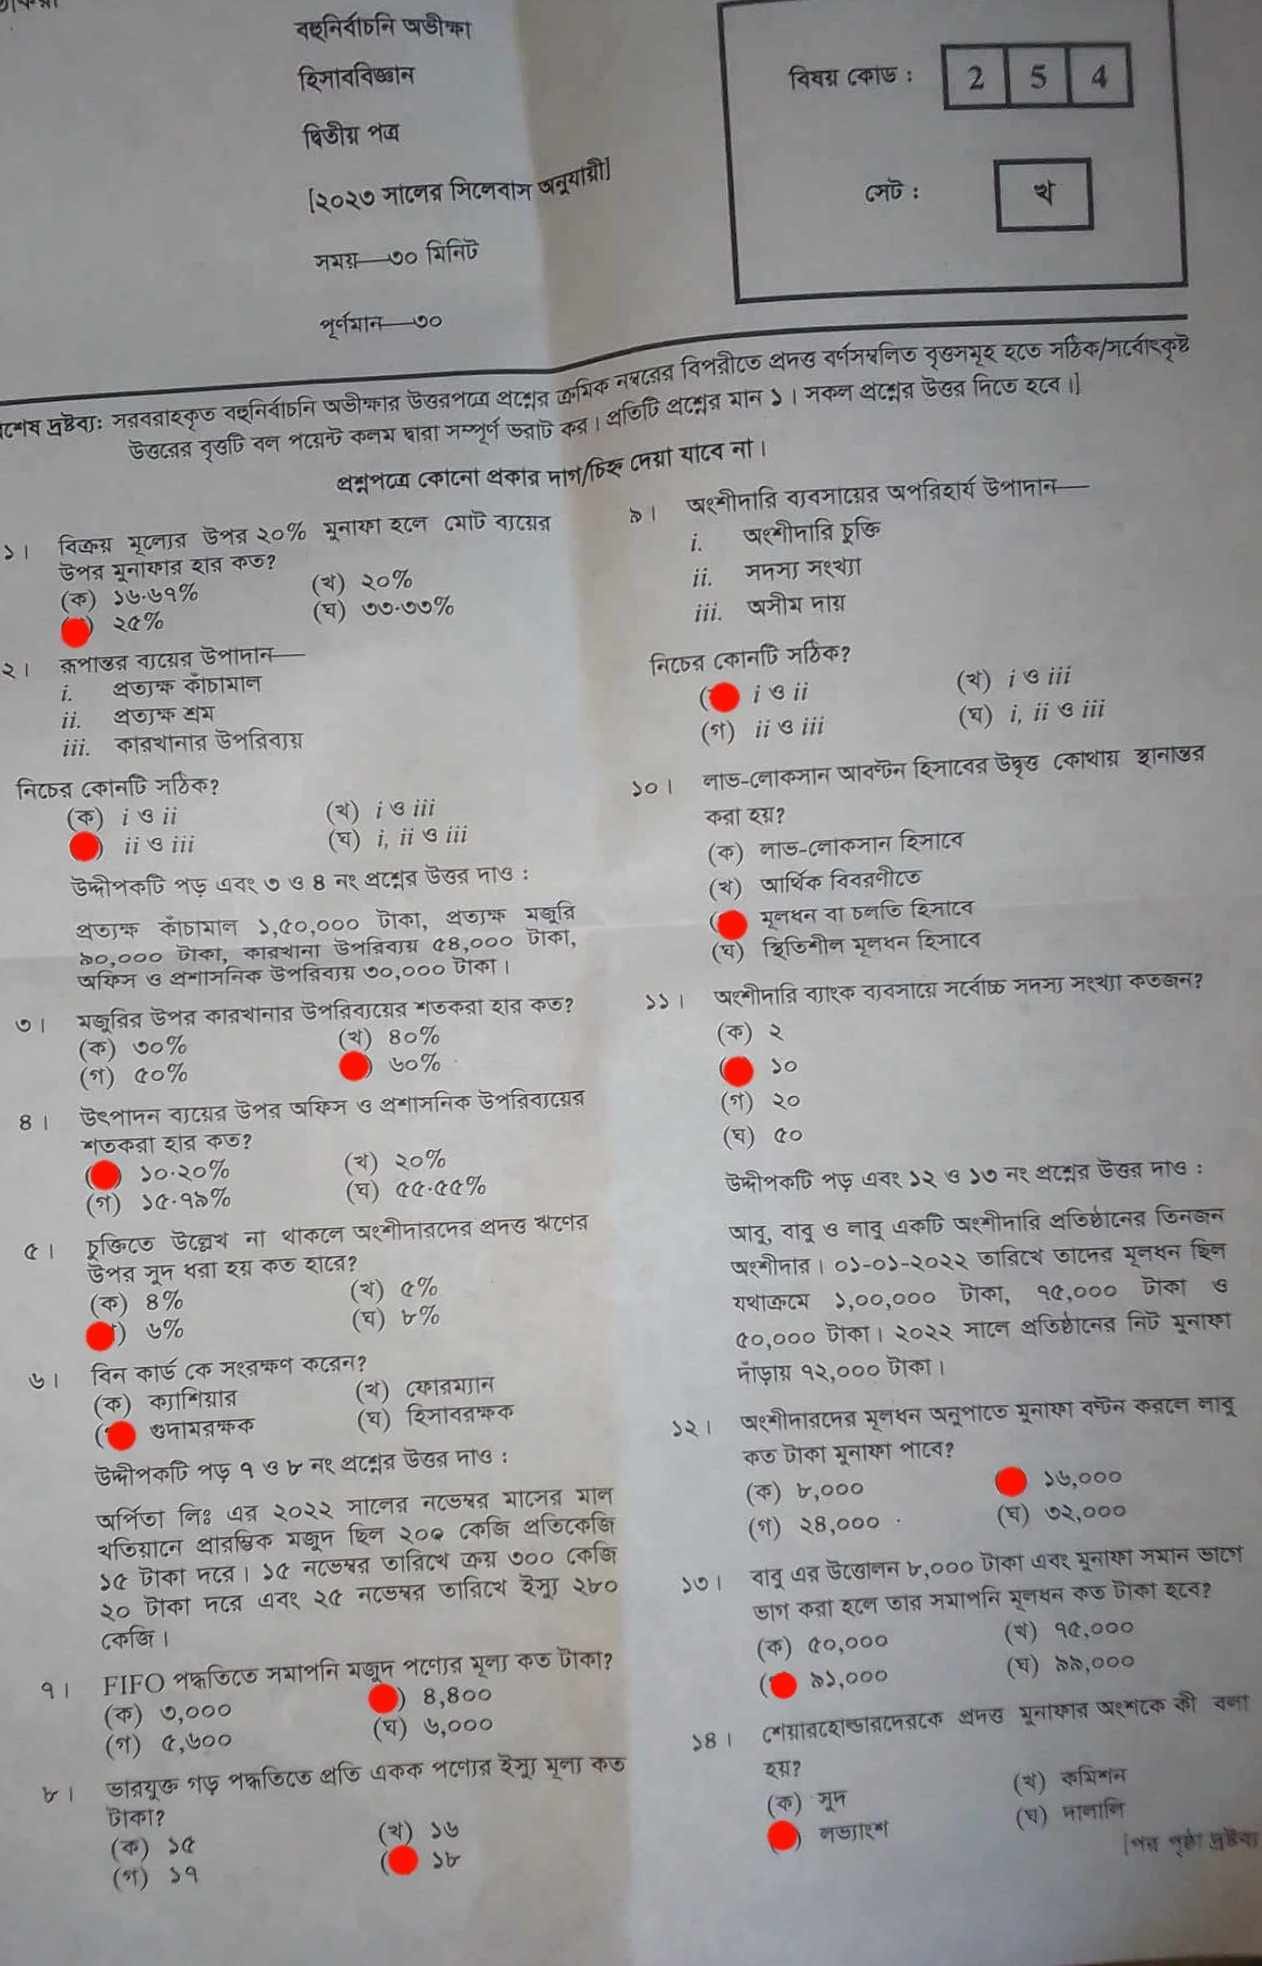 বহুনির্বাচনি অভীক্ষা
হিসাববিজ্ঞান
দ্বিতীয় পত্র
[২০২৩ সালের সিলেবাস অনুযায়ী]
সময়—৩০ মিনিট
পূর্ণমান—৩০
বিষয় কোড : 2 5 4
সেট : খ
দ্রষ্টব্য: সরবরাহকৃত বহুনির্বাচনি অভীক্ষার উত্তরপত্রে প্রশ্নের ক্রমিক নম্বরের বিপরীতে প্রদত্ত বর্ণসম্বলিত বৃত্তসমূহ হতে সঠিক/সর্বোৎকৃষ্ট
উত্তরের বৃত্তটি বল পয়েন্ট কলম দ্বারা সম্পূর্ণ ভরাট কর। প্রতিটি প্রশ্নের মান ১। সকল প্রশ্নের উত্তর দিতে হবে।]
প্রশ্নপত্রে কোনো প্রকার দাগ/চিহ্ন দেয়া যাবে না।
১। বিক্রয় মূল্যের উপর ২০% মুনাফা হলে মোট ব্যয়ের
উপর মুনাফার হার কত?
(ক) ১৬.৬৭% (খ) ২০%
) ২৫% (ঘ) ৩৩.৩৩%
২। রূপান্তর ব্যয়ের উপাদান—
i. প্রত্যক্ষ কাঁচামাল
ii. প্রত্যক্ষ শ্রম
iii. কারখানার উপরিব্যয়
নিচের কোনটি সঠিক?
(ক) i ও ii (খ) i ও iii
) ii ও iii (ঘ) i, ii ও iii
উদ্দীপকটি পড় এবং ৩ ও ৪ নং প্রশ্নের উত্তর দাও :
প্রত্যক্ষ কাঁচামাল ১,৫০,০০০ টাকা, প্রত্যক্ষ মজুরি
৯০,০০০ টাকা, কারখানা উপরিব্যয় ৫৪,০০০ টাকা,
অফিস ও প্রশাসনিক উপরিব্যয় ৩০,০০০ টাকা।
৩। মজুরির উপর কারখানার উপরিব্যয়ের শতকরা হার কত?
(ক) ৩০% (খ) ৪০%
(গ) ৫০% ) ৬০%
৪। উৎপাদন ব্যয়ের উপর অফিস ও প্রশাসনিক উপরিব্যয়ের
শতকরা হার কত?
( ) ১০.২০% (খ) ২০%
(গ) ১৫.৭৯% (ঘ) ৫৫.৫৫%
৫। চুক্তিতে উল্লেখ না থাকলে অংশীদারদের প্রদত্ত ঋণের
উপর সুদ ধরা হয় কত হারে?
(ক) ৪% (খ) ৫%
) ৬% (ঘ) ৮%
৬। বিন কার্ড কে সংরক্ষণ করেন?
(ক) ক্যাশিয়ার (খ) ফোরম্যান
( গুদামরক্ষক (ঘ) হিসাবরক্ষক
উদ্দীপকটি পড় ৭ ও ৮ নং প্রশ্নের উত্তর দাও :
অর্পিতা লিঃ এর ২০২২ সালের নভেম্বর মাসের মাল
খতিয়ানে প্রারম্ভিক মজুদ ছিল ২০০ কেজি প্রতিকেজি
১৫ টাকা দরে। ১৫ নভেম্বর তারিখে ক্রয় ৩০০ কেজি
২০ টাকা দরে এবং ২৫ নভেম্বর তারিখে ইস্যু ২৮০
কেজি।
৭। FIFO পদ্ধতিতে সমাপনি মজুদ পণ্যের মূল্য কত টাকা?
(ক) ৩,০০০ ) ৪,৪০০
(গ) ৫,৬০০ (ঘ) ৬,০০০
৮। ভারযুক্ত গড় পদ্ধতিতে প্রতি একক পণ্যের ইস্যু মূল্য কত
টাকা?
(ক) ১৫ (খ) ১৬
(গ) ১৭ ( ১৮
৯। অংশীদারি ব্যবসায়ের অপরিহার্য উপাদান—
i. অংশীদারি চুক্তি
ii. সদস্য সংখ্যা
iii. অসীম দায়
নিচের কোনটি সঠিক?
( i ও ii (খ) i ও iii
(গ) ii ও iii (ঘ) i, ii ও iii
১০। লাভ-লোকসান আবণ্টন হিসাবের উদ্বৃত্ত কোথায় স্থানান্তর
করা হয়?
(ক) লাভ-লোকসান হিসাবে
(খ) আর্থিক বিবরণীতে
( মূলধন বা চলতি হিসাবে
(ঘ) স্থিতিশীল মূলধন হিসাবে
১১। অংশীদারি ব্যাংক ব্যবসায়ে সর্বোচ্চ সদস্য সংখ্যা কতজন?
(ক) ২
( ১০
(গ) ২০
(ঘ) ৫০
উদ্দীপকটি পড় এবং ১২ ও ১৩ নং প্রশ্নের উত্তর দাও :
আবু, বাবু ও লাবু একটি অংশীদারি প্রতিষ্ঠানের তিনজন
অংশীদার। ০১-০১-২০২২ তারিখে তাদের মূলধন ছিল
যথাক্রমে ১,০০,০০০ টাকা, ৭৫,০০০ টাকা ও
৫০,০০০ টাকা। ২০২২ সালে প্রতিষ্ঠানের নিট মুনাফা
দাঁড়ায় ৭২,০০০ টাকা।
১২। অংশীদারদের মূলধন অনুপাতে মুনাফা বণ্টন করলে লাবু
কত টাকা মুনাফা পাবে?
(ক) ৮,০০০ ১৬,০০০
(গ) ২৪,০০০ (ঘ) ৩২,০০০
১৩। বাবু এর উত্তোলন ৮,০০০ টাকা এবং মুনাফা সমান ভাগে
ভাগ করা হলে তার সমাপনি মূলধন কত টাকা হবে?
(ক) ৫০,০০০ (খ) ৭৫,০০০
( ৯১,০০০ (ঘ) ৯৯,০০০
১৪। শেয়ারহোল্ডারদেরকে প্রদত্ত মুনাফার অংশকে কী বলা
হয়?
(ক) সুদ (খ) কমিশন
) লভ্যাংশ (ঘ) দালালি
[পর পৃষ্ঠা দ্রষ্টব্য